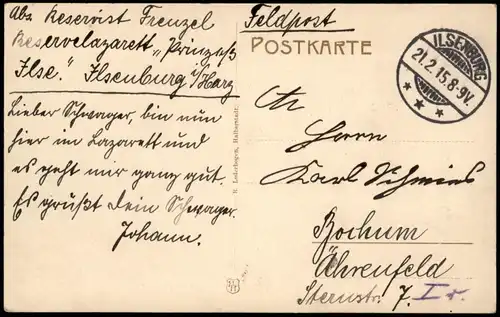 Abs. Reservist Frenzel
Reservelazarett „Prinzeß
Ilse." Ilsenburg i/Harz
Lieber Schwager, bin nun
hier im Lazarett und
es geht mir ganz gut.
Es grüßt Dein Schwager
Johann.
Feldpost
POSTKARTE
ILSENBURG
21.2.15.8-9V.
R. Lederbogen, Halberstadt.
An
Herrn
Karl Schmies
Bochum
Ährenfeld
Sternstr. 7. I r.